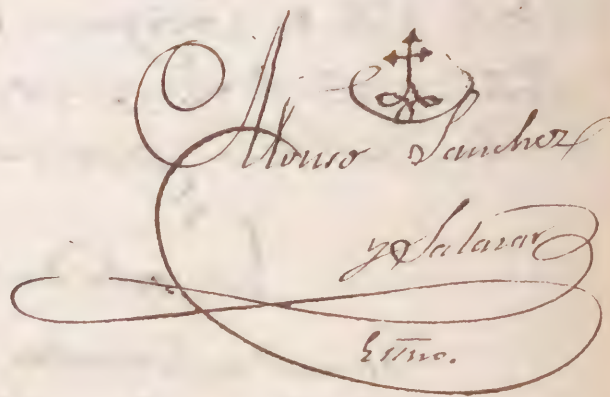 Alonso Sanchez
y Salazar
Essno.